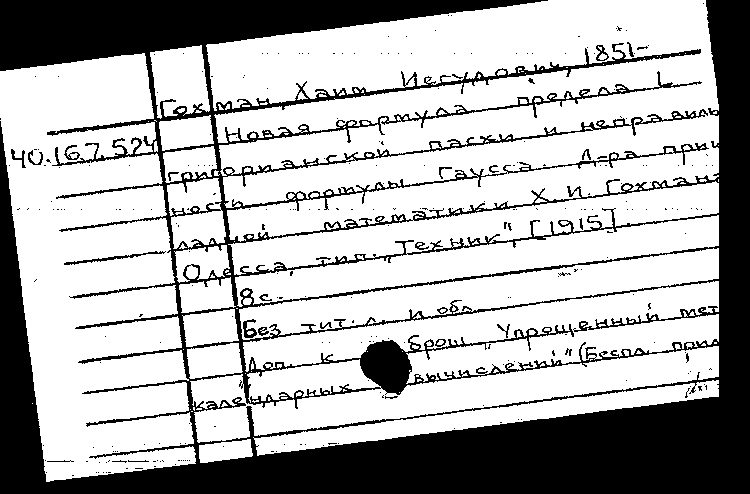 Гохман, Хаим Иегудович, 1851-
Новая формула предела L
40.167.594 григорианской пасхи и неправиль
ность формулы Гаусса. Д-ра прик
ладной математики Х. И. Гохмана
Одесса, тип. "Техник", [1915].
8 с.
Без тит. л. и обл.
Доп. к брош. "Упрощенный мет
календарных вычислений" (Беспл. прил